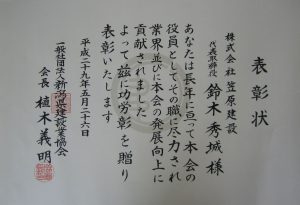 表彰状
株式会社笠原建設
代表取締役
鈴木秀城様
あなたは長年に亘って本会の
役員としてその職に尽力され
業界並びに本会の発展向上に
貢献されました
よって茲に功労彰を贈り
表彰いたします
平成二十九年五月二十六日
一般社団法人新潟県建設業協会
会長植木義明